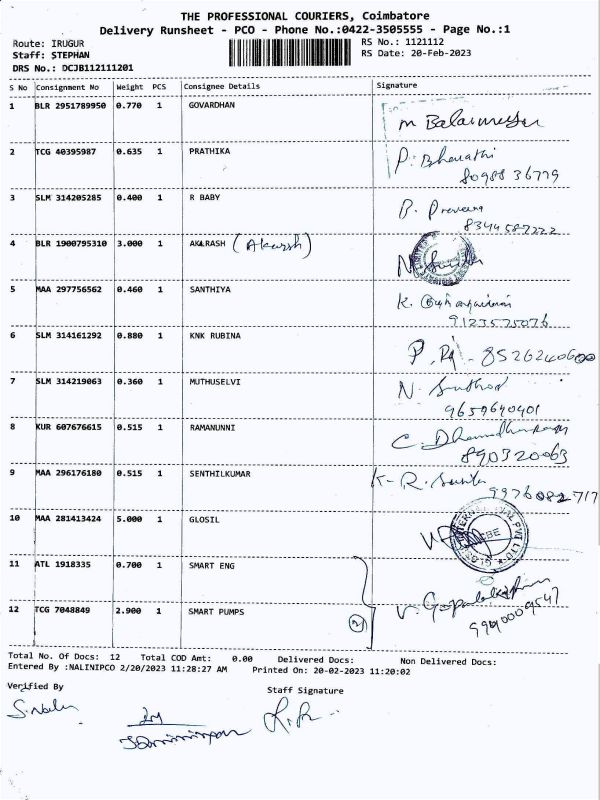 THE PROFESSIONAL COURIERS, Coimbatore
Delivery Runsheet - PCO - Phone No.:0422-3505555 - Page No.:1
Route: IRUGUR
RS No.: 1121112
Staff: STEPHAN
RS Date: 20-Feb-2023
DRS No.: DCJB112111201
S No Consignment No Weight PCS Consignee Details Signature
1 BLR 2951789950 0.770 1 GOVARDHAN
2 TCG 40395987 0.635 1 PRATHIKA P. Bharathi
3 SLM 314205285 0.400 1 R BABY B. Praveena
4 BLR 1900795310 3.000 1 AKARASH (Akarsh)
5 MAA 297756562 0.460 1 SANTHIYA K.
9123575076
6 SLM 314161292 0.880 1 KNK RUBINA 8526240600
7 SLM 314219063 0.360 1 MUTHUSELVI N.
9659640401
8 KUR 607676615 0.515 1 RAMANUNNI C.
890320063
9 MAA 296176180 0.515 1 SENTHILKUMAR K-R.
9976082717
10 MAA 281413424 5.000 1 GLOSIL
11 ATL 1918335 0.700 1 SMART ENG
12 TCG 7048849 2.900 1 SMART PUMPS 2 V.
Total No. Of Docs: 12 Total COD Amt: 0.00 Delivered Docs: Non Delivered Docs:
Entered By :NALINIPCO 2/20/2023 11:28:27 AM Printed On: 20-02-2023 11:20:02
Verified By
Staff Signature